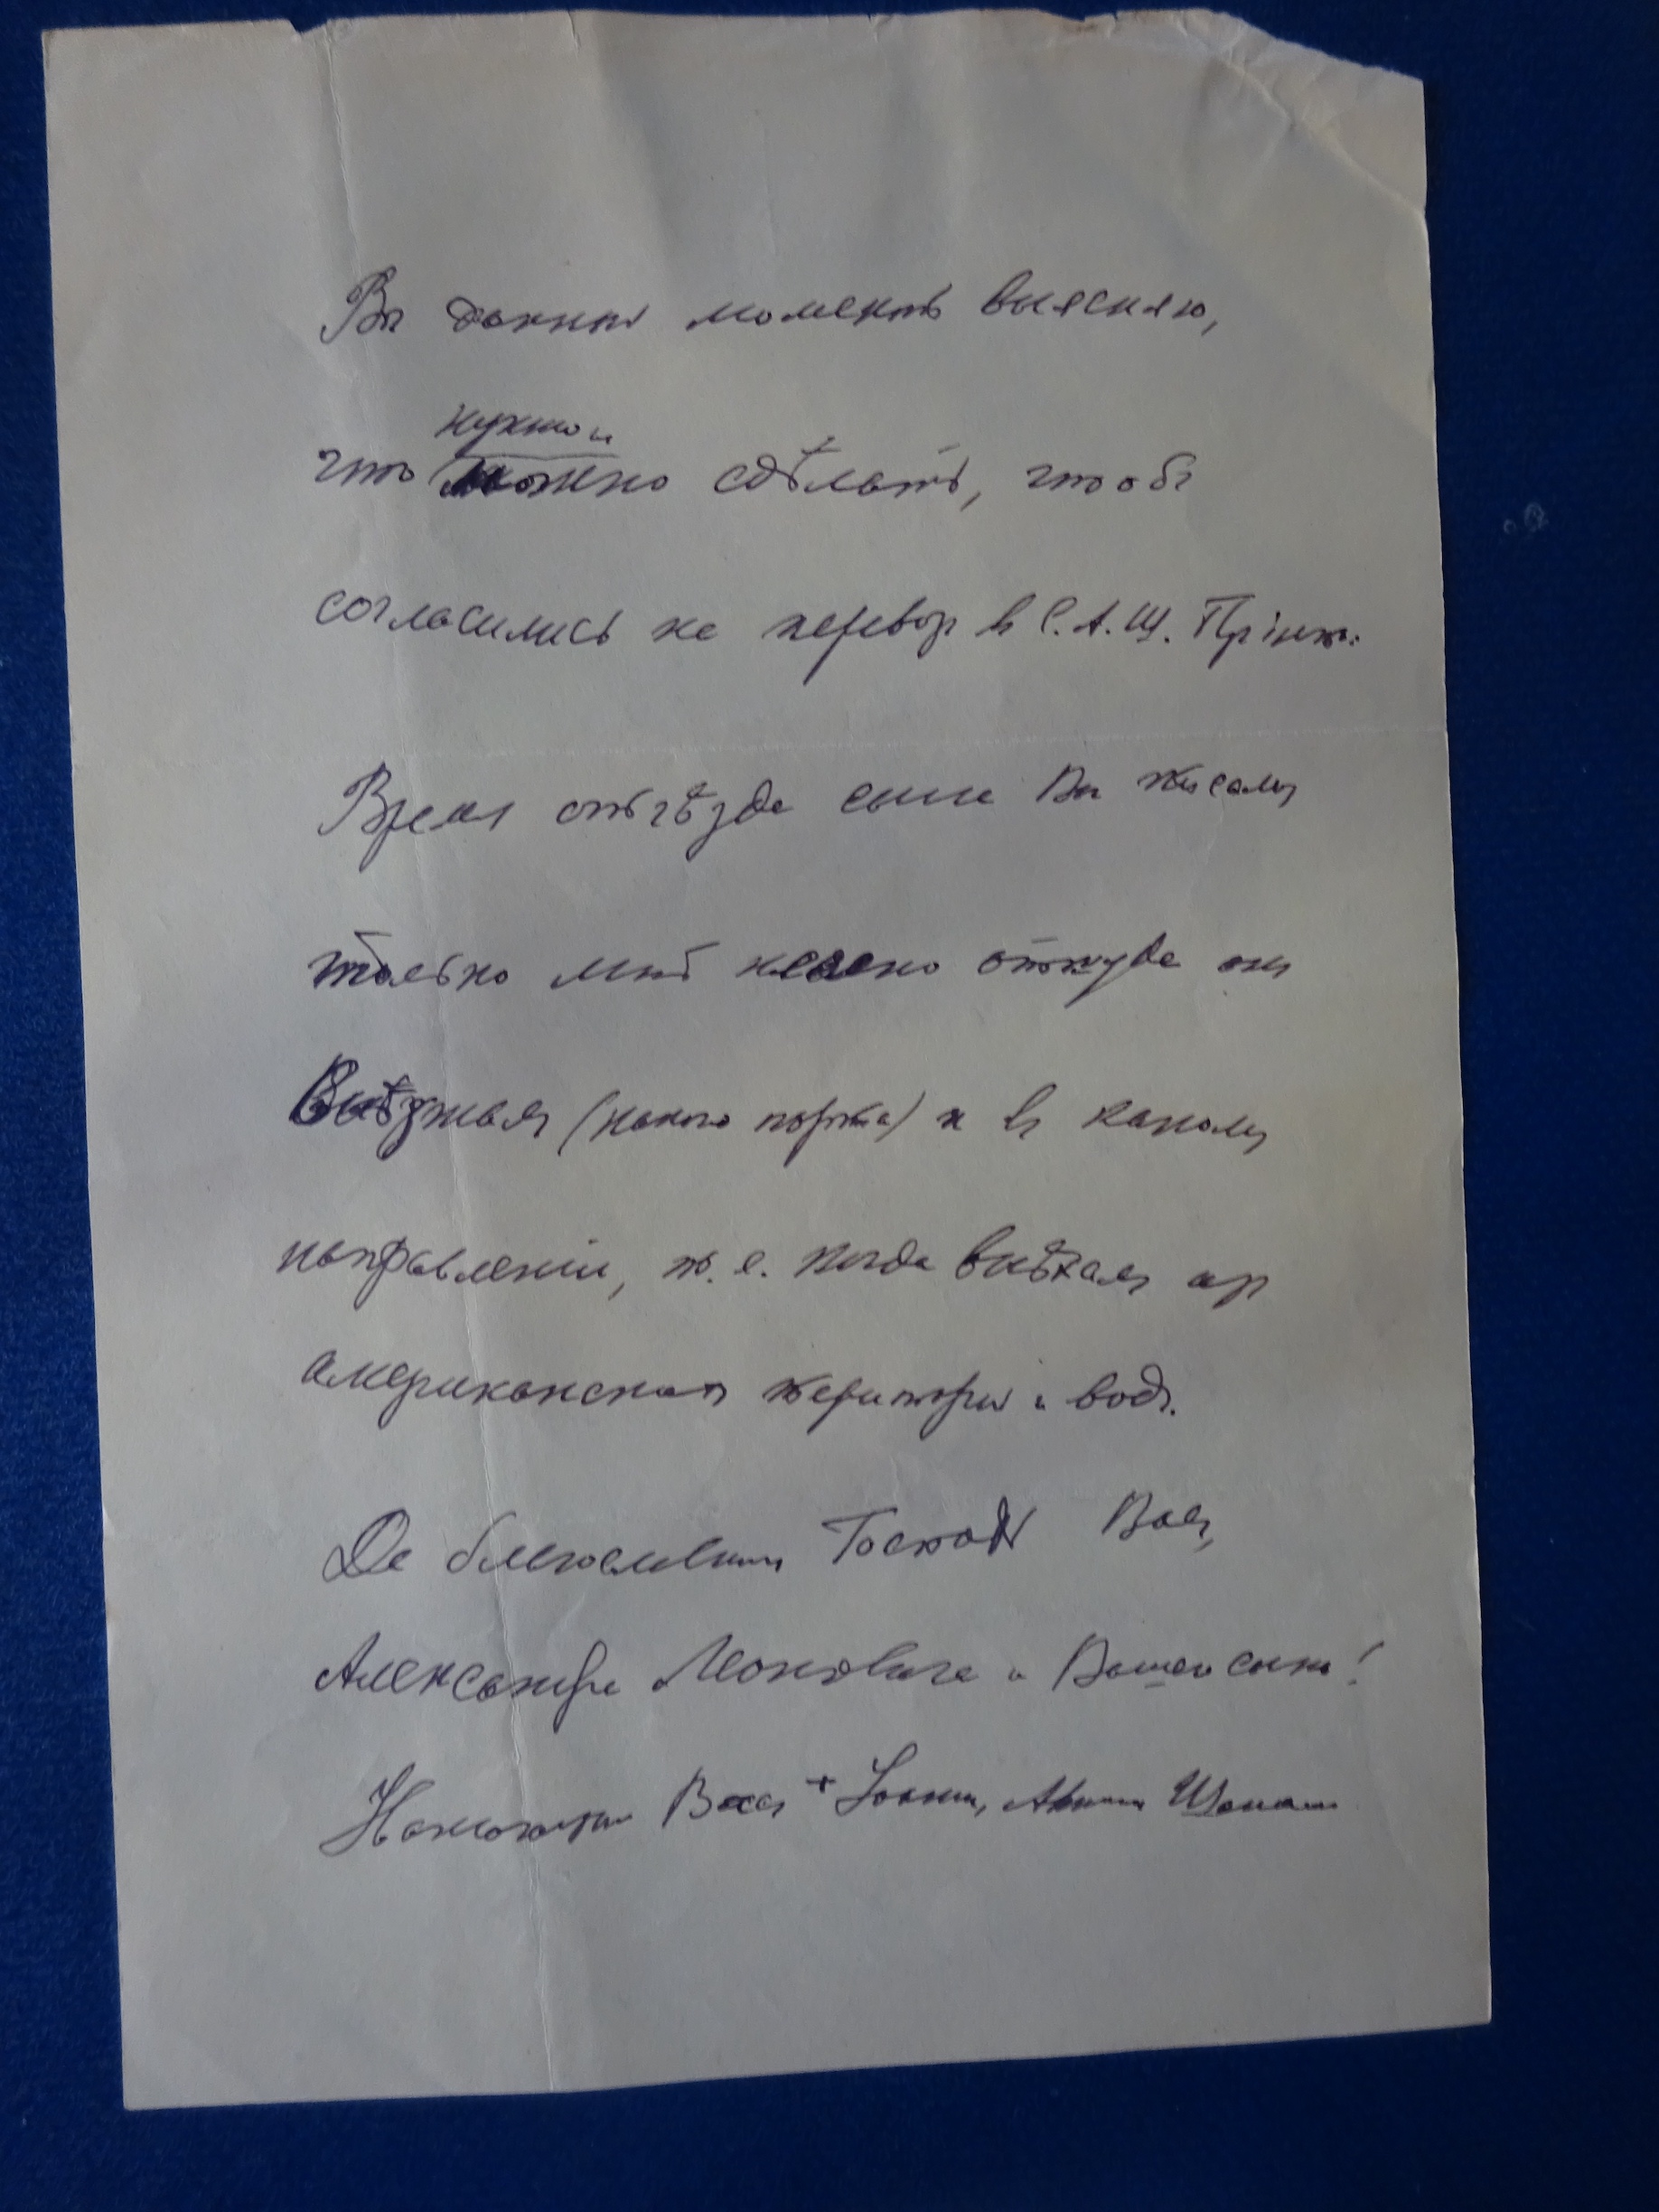 Въ данный моментъ выясняю,
нужно и
что можно сдѣлать, чтобъ
согласились на перевоз в С.А.Ш.
Время отъѣзда сына Вы писали,
только мнѣ неясно откуда он
выѣзжал (какого порта) и въ каком
направленіи, т.е. когда выѣхал из
американских територій и вод.
Да благословит Господь Вас,
Александра Леонтьевича и Вашего сына!
Вас + Іоанн, Шанхай